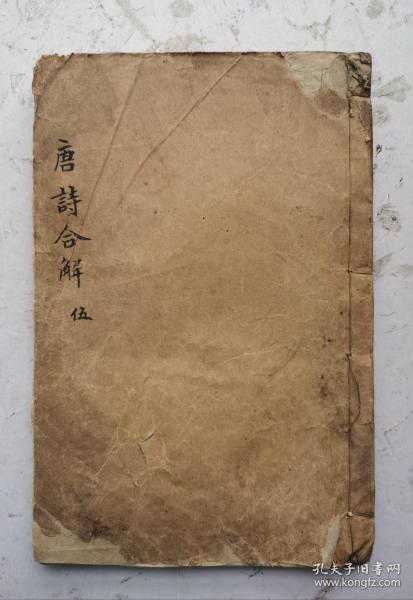 唐詩合解 伍
孔夫子旧书网
www.kongfz.com